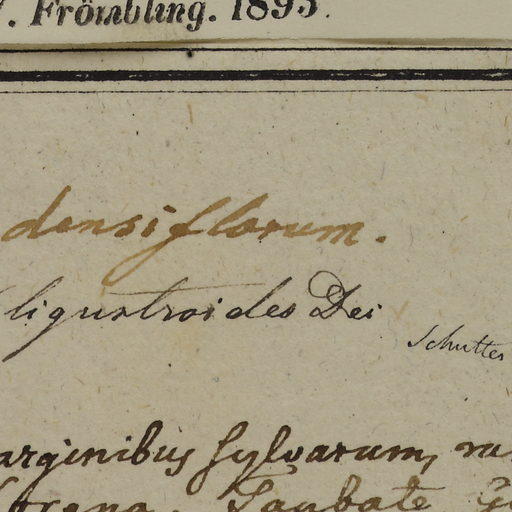 . Frömbling. 1895.
densiflorum.
ligustroides Dei
Schultes
arginibus sylvarum,
Taubaté